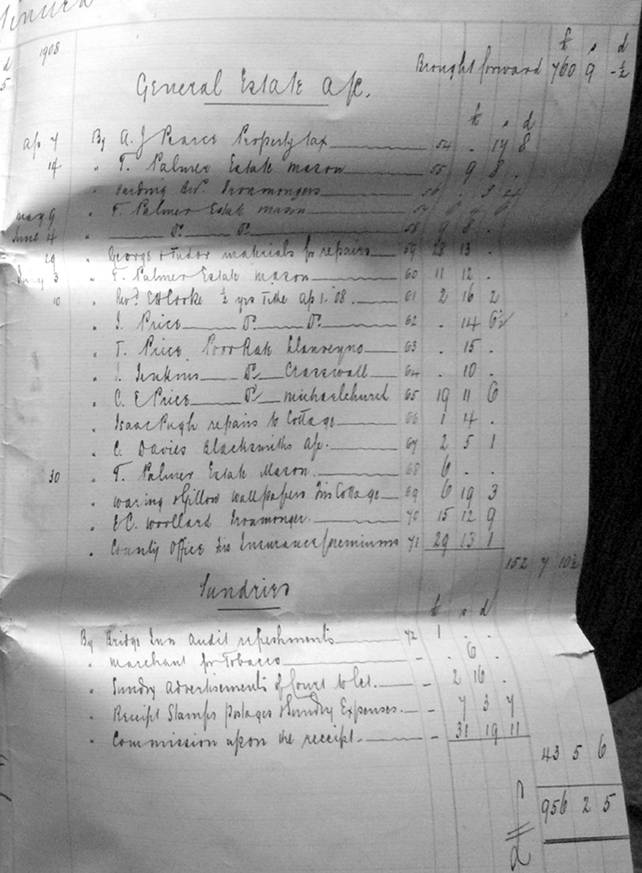 1908
£ s d
Brought forward 760 9 -½
General Estate a/c.
£ s d
Ap 7 By A. J Pearce Property tax 54 . 14 8
14 " T. Palmer Estate mason 55 9 8 .
" Bros. Ironmongers 56
May 9 " T. Palmer Estate mason 57
June 4 " Do. Do. 58 9 8 .
29 George & Tudor materials for repairs 59 28 13 .
July 3 " T. Palmer Estate mason 60 11 12 .
10 " Revd. ½ yrs Tithe Ap 1. '08. 61 2 16 2
" J. Price Do. Do. 62 . 14 6½
" T. Price Poor Rate Llanveyno 63 . 15 .
" J. Jenkins Do Craswall 64 . 10 .
" C. E Price Do michaelchurch 65 19 11 6
" Isaac Pugh repairs to Cottage 66 1 4 .
" C. Davies Blacksmiths a/c. 67 2 5 1
30 " T. Palmer Estate Mason. 68 6 . .
" Waring & Gillow wallpapers Cottage 69 6 19 3
" E.C. Woollard Ironmonger. 70 15 12 9
" County Office Fire Insurance premiums 71 29 13 1
152 7 10½
Sundries
£ s d
By Bridge Inn Audit refreshments 72 1 . .
" Marchant for Tobacco - . 6 .
" Sundry Advertisements of Court to let. - 2 16 .
" Receipt Stamps Postages & Sundry Expenses. - 7 3 7
" Commission upon the receipt. - 31 19 11
43 5 6
£ 956 2 5